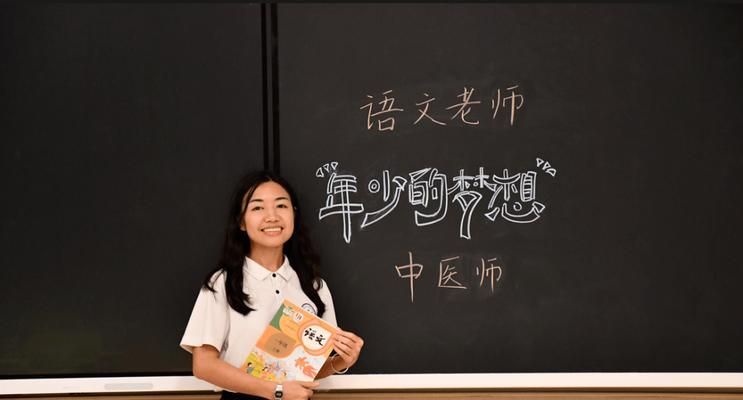 语文老师
"年少的梦想"
中医师
语文
一年级